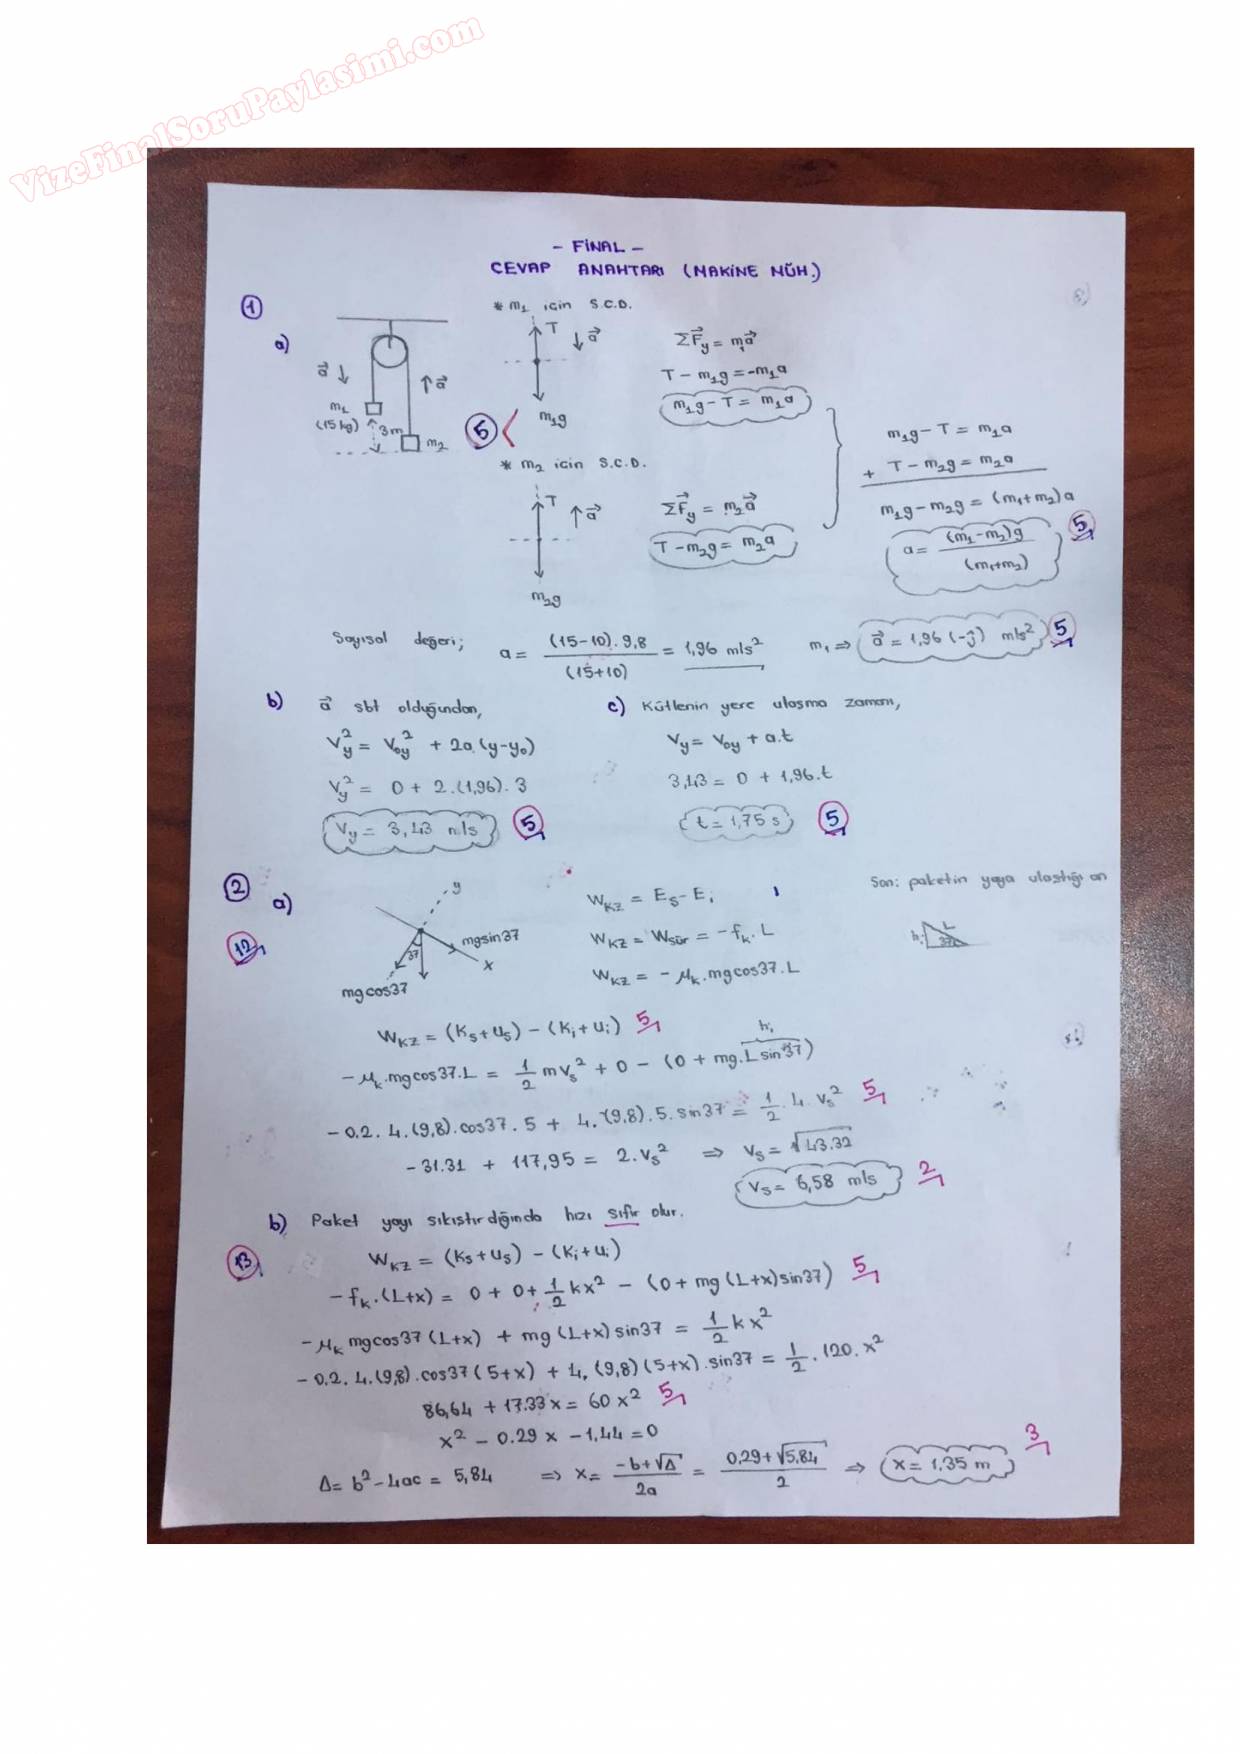 VizeFinalSoruPaylasimi.com
- FİNAL -
CEVAP ANAHTARI (MAKİNE MÜH.)
1
a)
* m₁ icin S.C.D.
T
a⃗
m₁g
a⃗
a⃗
m₁
(15 kg)
3m
m₂
5
ΣF⃗y = m₁a⃗
T - m₁g = -m₁a
m₁g - T = m₁a
* m₂ icin S.C.D.
T
a⃗
m₂g
ΣF⃗y = m₂a⃗
T - m₂g = m₂a
m₁g - T = m₁a
+ T - m₂g = m₂a
m₁g - m₂g = (m₁+m₂)a
a = (m₁-m₂)g / (m₁+m₂)
5
Sayısal değeri; a = (15-10).9,8 / (15+10) = 1,96 m/s² m₁ ⇒ a⃗ = 1,96 (-ĵ) m/s² 5
b) a⃗ sbt olduğundan,
Vy² = Voy² + 2a.(y-y₀)
Vy² = 0 + 2.(1,96).3
Vy = 3,43 m/s 5
c) Kütlenin yere ulaşma zamanı,
Vy = Voy + a.t
3,43 = 0 + 1,96.t
t = 1,75 s 5
2
a)
12
y
mgsin37
37
x
mgcos37
WKZ = Es - Ei
WKZ = Wsür = -fk.L
WKZ = - μk.mgcos37.L
Son: paketin yaya ulaştığı an
h
L
37
WKZ = (Ks+Us) - (Ki+Ui) 5
hi
-μk.mgcos37.L = 1/2 mVs² + 0 - (0 + mg.Lsin37)
-0.2. 4.(9,8).cos37.5 + 4.(9,8).5.sin37 = 1/2.4.Vs² 5
-31.31 + 117,95 = 2.Vs² ⇒ Vs = √43.32
Vs = 6,58 m/s 2
b) Paket yayı sıkıştırdığında hızı sıfır olur.
13
WKZ = (Ks+Us) - (Ki+Ui)
-fk.(L+x) = 0 + 0 + 1/2 kx² - (0 + mg(L+x)sin37) 5
-μk mgcos37(L+x) + mg(L+x)sin37 = 1/2 kx²
-0.2. 4.(9,8).cos37(5+x) + 4.(9,8)(5+x).sin37 = 1/2.120.x²
86,64 + 17.33x = 60x² 5
x² - 0.29x - 1,44 = 0
Δ = b² - 4ac = 5,84 ⇒ x = -b+√Δ / 2a = 0,29+√5,84 / 2 ⇒ x = 1,35 m 3